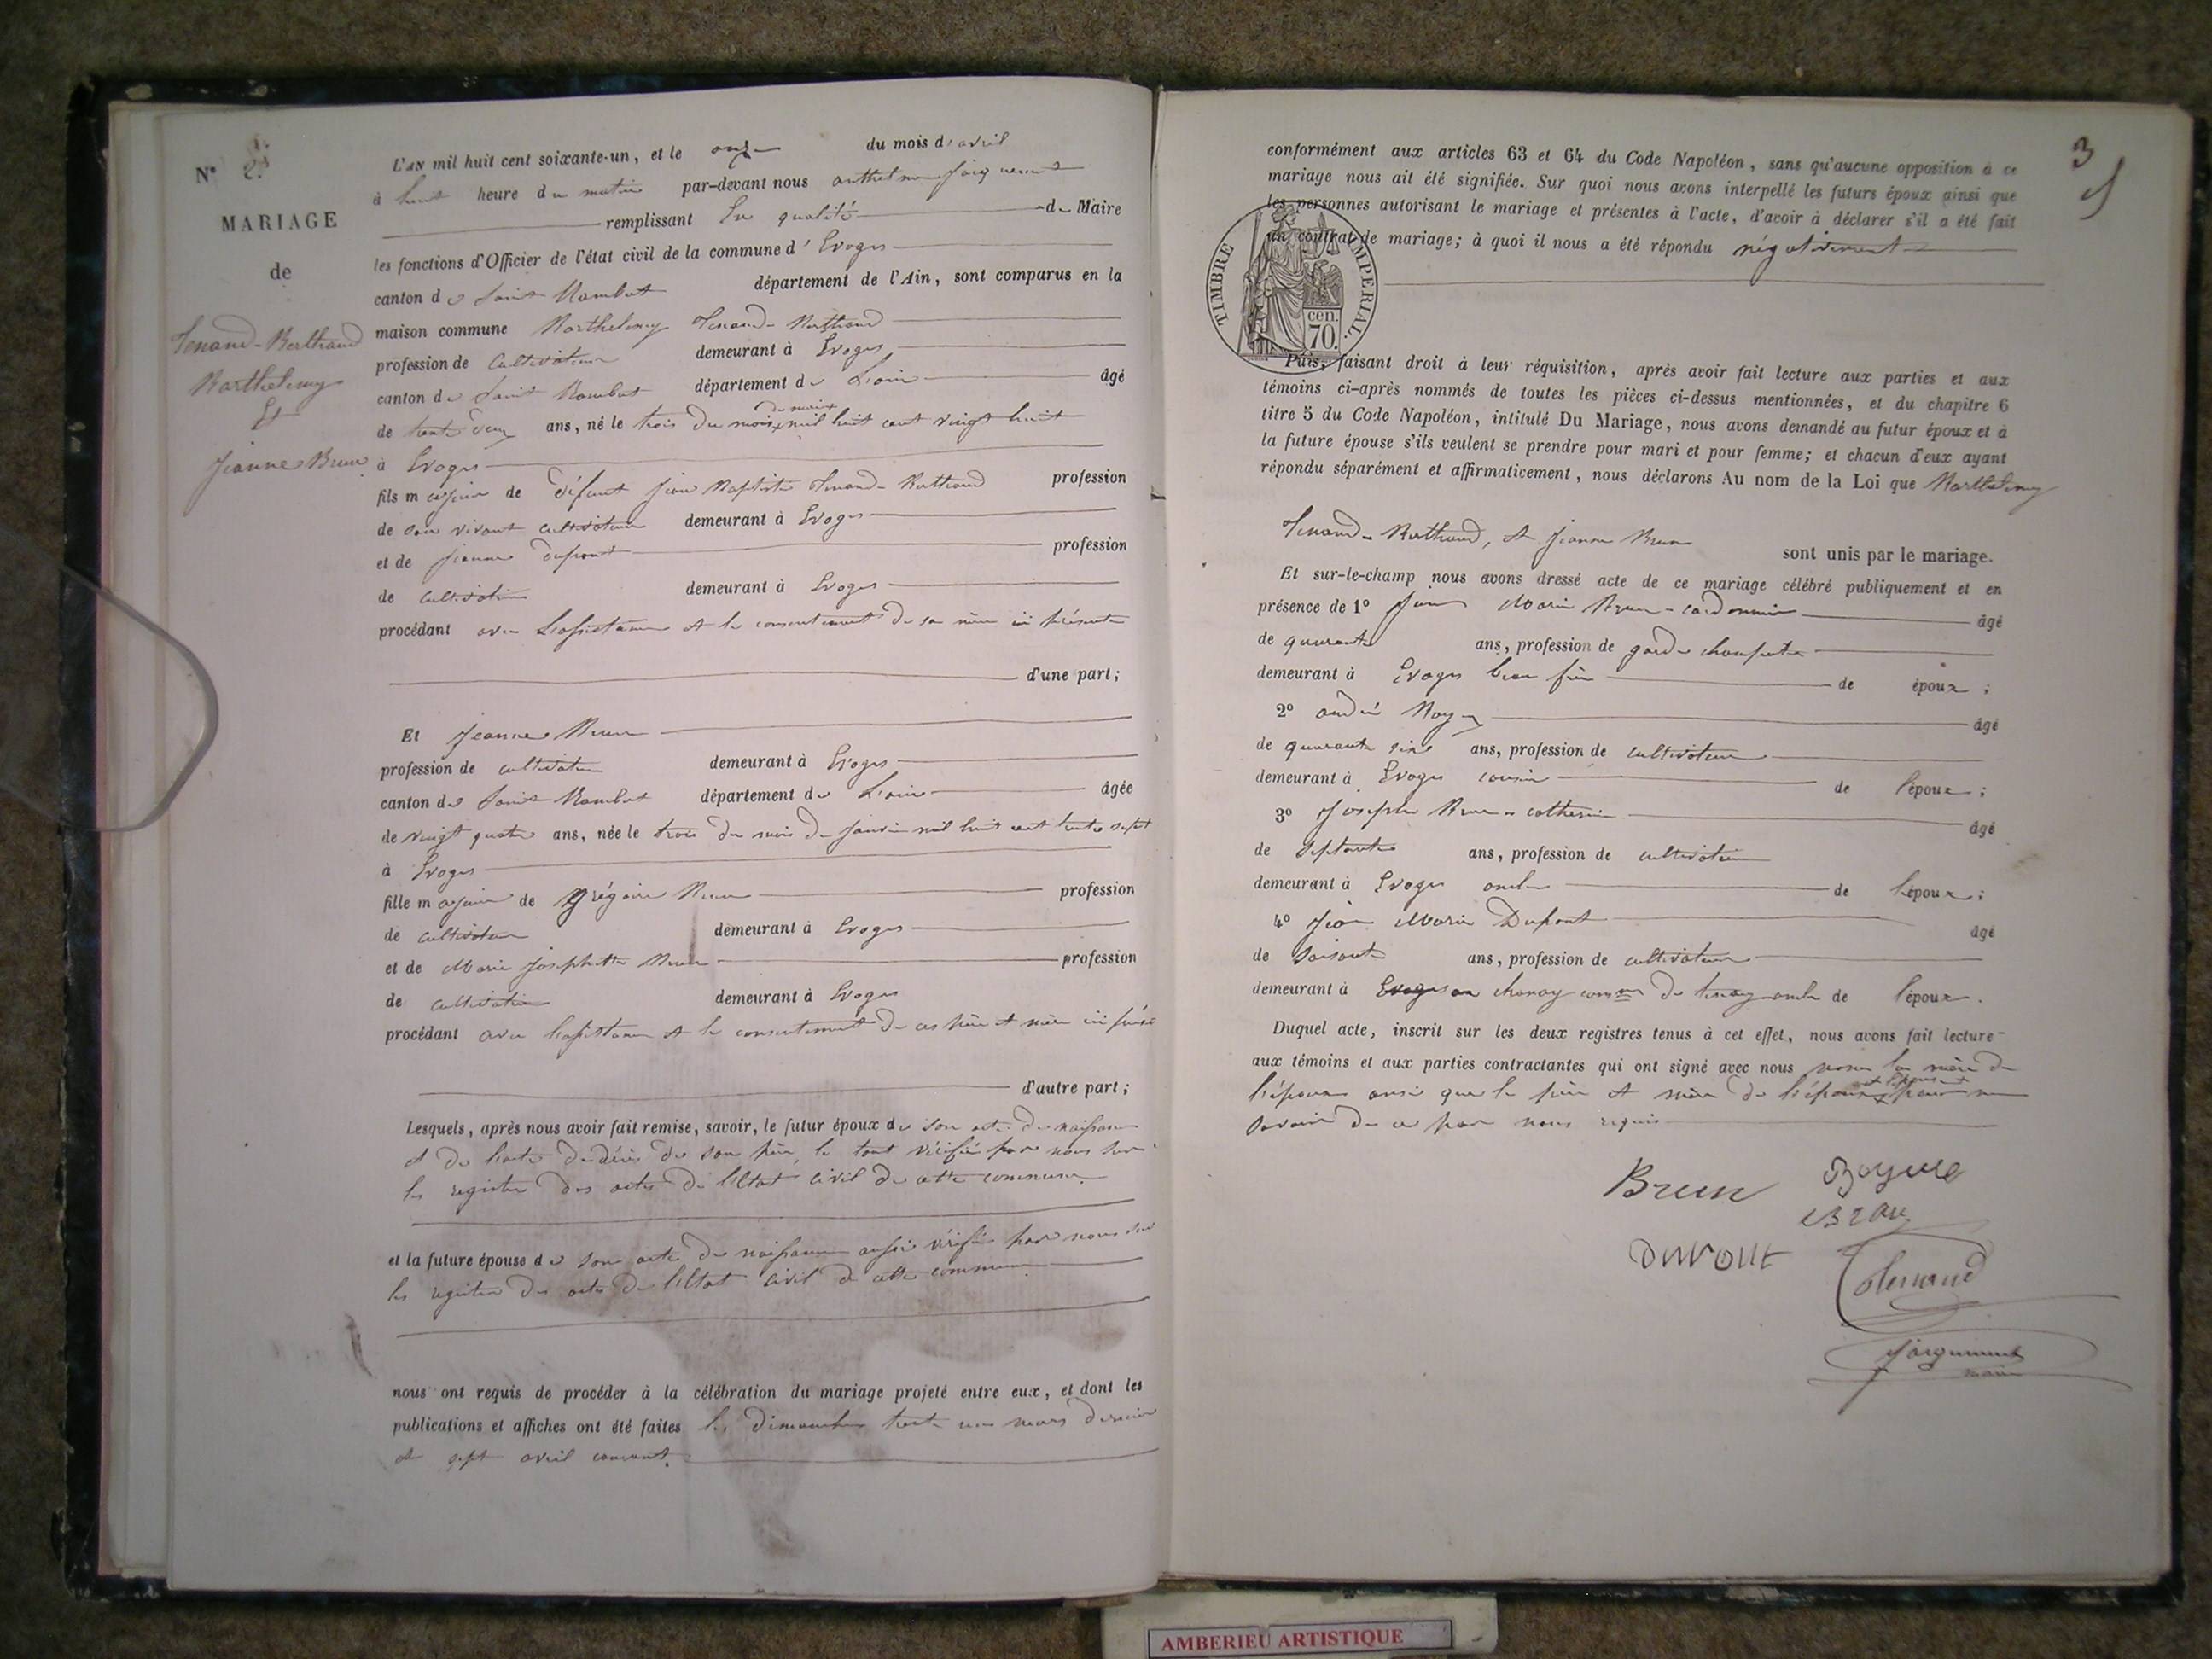 N° 2.
MARIAGE
de
Tenand-Berthand
Barthelemy
Et
Jeanne Brun
L'AN mil huit cent soixante-un, et le onze du mois d'avril
à huit heure du matin par-devant nous anthelme Jarguement
remplissant En qualité de Maire
les fonctions d'Officier de l'état civil de la commune d'Evoges
canton de Saint Rambert département de l'Ain, sont comparus en la
maison commune Barthelemy Tenand-Berthand
profession de Cultivateur demeurant à Evoges
canton de Saint Rambert département de L'ain âgé
de trente deux ans, né le trois du mois mil huit cent vingt huit
à Evoges
fils majeur de défunt Jean Baptiste Tenand-Berthand profession
de son vivant cultivateur demeurant à Evoges
et de Jeanne Dupont profession
de Cultivatrice demeurant à Evoges
procédant avec L'assistance et le consentement de sa mère ici présente
d'une part;
Et Jeanne Brun
profession de cultivatrice demeurant à Evoges
canton de Saint Rambert département de L'ain âgée
de vingt quatre ans, née le trois du mois de Janvier mil huit cent trente sept
à Evoges
fille majeure de Grégoire Brun profession
de cultivateur demeurant à Evoges
et de Marie Josephette Brun profession
de cultivatrice demeurant à Evoges
procédant avec l'assistance et le consentement de ses père et mère ici présé
d'autre part;
Lesquels, après nous avoir fait remise, savoir, le futur époux de son acte de naissance
et de l'acte de décès de son père, le tout vérifié par nous sur
les registres des actes de l'Etat civil de cette commune.
et la future épouse de son acte de naissance aussi vérifié par nous sur
les registres des actes de l'Etat civil de cette commune
nous ont requis de procéder à la célébration du mariage projeté entre eux, et dont les
publications et affiches ont été faites les dimanches trente un mars dernier
et sept avril courant.
3
conformément aux articles 63 et 64 du Code Napoléon, sans qu'aucune opposition à ce
mariage nous ait été signifiée. Sur quoi nous avons interpellé les futurs époux ainsi que
les personnes autorisant le mariage et présentes à l'acte, d'avoir à déclarer s'il a été fait
un contrat de mariage; à quoi il nous a été répondu négativement
TIMBRE IMPERIAL.
cen.
70.
Puis, faisant droit à leur réquisition, après avoir fait lecture aux parties et aux
témoins ci-après nommés de toutes les pièces ci-dessus mentionnées, et du chapitre 6
titre 5 du Code Napoléon, intitulé Du Mariage, nous avons demandé au futur époux et à
la future épouse s'ils veulent se prendre pour mari et pour femme; et chacun d'eux ayant
répondu séparément et affirmativement, nous déclarons Au nom de la Loi que Barthelemy
Tenand-Berthand, et Jeanne Brun sont unis par le mariage.
Et sur-le-champ nous avons dressé acte de ce mariage célébré publiquement et en
présence de 1° Jean Marie Brun-cardonnier âgé
de quarante ans, profession de garde champetre
demeurant à Evoges beau frère de époux;
2° andré Roy âgé
de quarante six ans, profession de cultivateur
demeurant à Evoges cousin de l'époux;
3° Joseph Brun-catherin âgé
de septante ans, profession de cultivateur
demeurant à Evoges oncle de l'époux;
4° Jean Marie Dupont âgé
de soixante ans, profession de cultivateur
demeurant à Evoges chanay comne de tenay oncle de l'époux.
Duquel acte, inscrit sur les deux registres tenus à cet effet, nous avons fait lecture
aux témoins et aux parties contractantes qui ont signé avec nous non la mère de
l'époux ansi que le père et mère de l'épouse pour ne
savoir de ce par nous requis
Brun
Dupont
Tenand
Jarguement
maire
AMBERIEU ARTISTIQUE